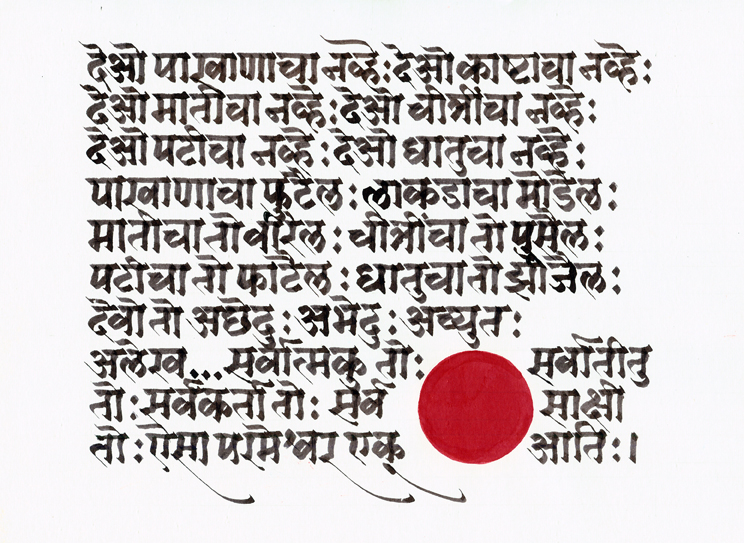 देओ पाखाणाचा नव्हे: देओ काष्टाचा नव्हे:
देओ मातीचा नव्हे: देओ चीत्रींचा नव्हे:
देओ पटीचा नव्हे: देओ धातुचा नव्हे:
पाखाणाचा फुटैल: लाकडाचा मोडैल:
मातीचा तो वीरैल: चीत्रींचा तो पुसैल:
पटीचा तो फाटैल: धातुचा तो झीजैल:
देवो तो अछेदु: अभेदु: अच्युत:
अलेख... सर्वात्मकु तो: सर्वातीतु
तो: सर्वकर्ता तो: सर्व साक्षी
तो: ऐसा परमेश्वर एकु आति:।